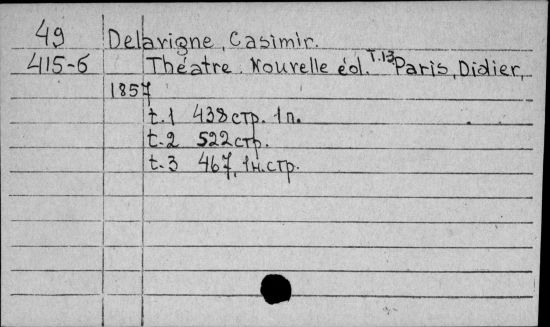 49 Delavigne, Casimir.
415-6 Théatre. Nouvelle éd. T.13 Paris, Didier,
1857
t.1 438 стр. 1 п.
t.2 522 стр.
t.3 467, 1 н. стр.